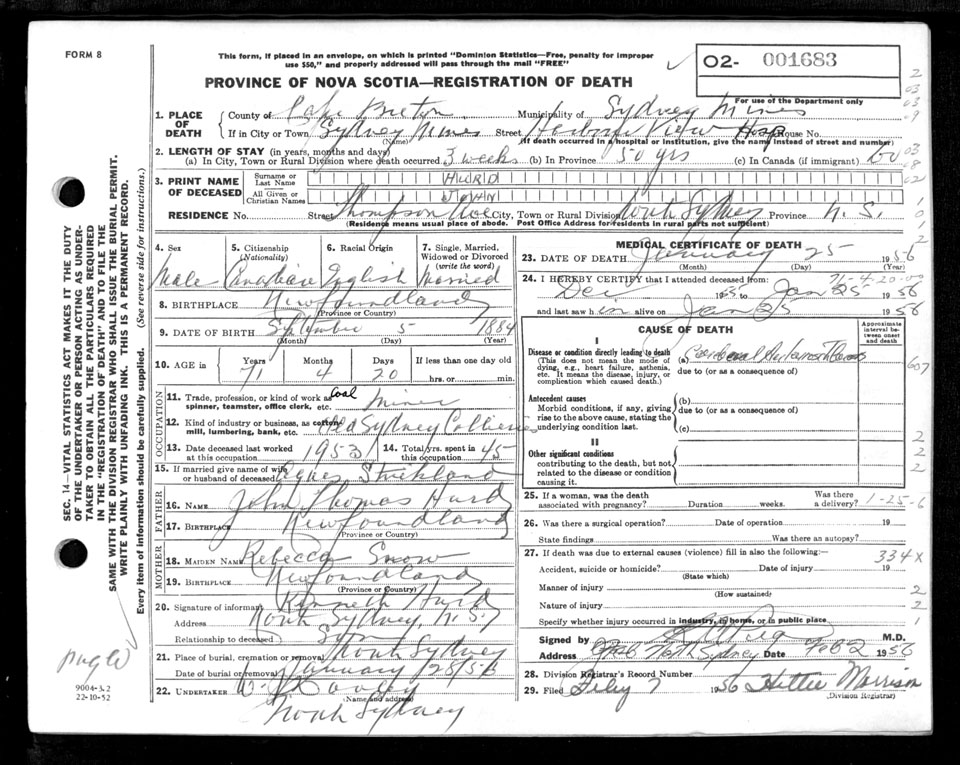 FORM 8
This form, if placed in an envelope, on which is printed "Dominion Statistics—Free, penalty for improper
use $50," and properly addressed will pass through the mail "FREE"
02- 001683
PROVINCE OF NOVA SCOTIA—REGISTRATION OF DEATH
For use of the Department only
1. PLACE OF DEATH
County of Cape Breton Municipality of Sydney Mines
If in City or Town Sydney Mines Street Harbour View Hosp House No.
(Name) (If death occurred in a hospital or institution, give the name instead of street and number)
2. LENGTH OF STAY (in years, months and days)
(a) In City, Town or Rural Division where death occurred 3 weeks (b) In Province 50 yrs (c) In Canada (if immigrant) 50
3. PRINT NAME OF DECEASED
Surname or Last Name HURD
All Given or Christian Names JOHN
RESIDENCE No. Street Thompson Ave City, Town or Rural Division North Sydney Province N. S.
(Residence means usual place of abode. Post Office Address for residents in rural parts not sufficient)
4. Sex 5. Citizenship 6. Racial Origin 7. Single, Married,
(Nationality) Widowed or Divorced
(write the word)
Male Canadian English Married
8. BIRTHPLACE Newfoundland
(Province or Country)
9. DATE OF BIRTH September 5 1884
(Month) (Day) (Year)
10. AGE in Years Months Days If less than one day old
71 4 20 hrs. or min.
OCCUPATION
11. Trade, profession, or kind of work as
spinner, teamster, office clerk, etc. Coal Miner
12. Kind of industry or business, as cotton
mill, lumbering, bank, etc. Old Sydney Collieries
13. Date deceased last worked at this occupation 1953 14. Total yrs. spent in this occupation 45
15. If married give name of wife
or husband of deceased Strickland
FATHER
16. NAME John Thomas Hurd
17. BIRTHPLACE Newfoundland
(Province or Country)
MOTHER
18. MAIDEN NAME Rebecca Snow
19. BIRTHPLACE Newfoundland
(Province or Country)
20. Signature of informant Kenneth Hurd
Address North Sydney, N. S.
Relationship to deceased Son
21. Place of burial, cremation or removal North Sydney
Date of burial or removal January 28/56
22. UNDERTAKER
(Name and address)
North Sydney
MEDICAL CERTIFICATE OF DEATH
23. DATE OF DEATH January 25 1956
(Month) (Day) (Year)
71-4-20-00
24. I HEREBY CERTIFY that I attended deceased from:
Dec 1955 to Jan 25 1956
and last saw h im alive on Jan 25 1956
CAUSE OF DEATH
Approximate interval between onset and death
I
Disease or condition directly leading to death
(This does not mean the mode of
dying, e.g., heart failure, asthenia,
etc. It means the disease, injury, or
complication which caused death.)
(a) Cerebral
due to (or as a consequence of)
Antecedent causes
Morbid conditions, if any, giving
rise to the above cause, stating the
underlying condition last.
(b)
due to (or as a consequence of)
(c)
II
Other significant conditions
contributing to the death, but not
related to the disease or condition
causing it.
25. If a woman, was the death
associated with pregnancy? Duration weeks. Was there a delivery? 1-25-6
26. Was there a surgical operation? Date of operation 19
State findings Was there an autopsy?
27. If death was due to external causes (violence) fill in also the following:— 334X
Accident, suicide or homicide? Date of injury 19
(State which)
Manner of injury
(How sustained)
Nature of injury
Specify whether injury occurred in industry, in home, or in public place
Signed by M.D.
Address North Sydney Date Feb 2 1956
28. Division Registrar's Record Number
29. Filed Feby 7 1956 Hettie Morrison
(Division Registrar)
SEC. 14—VITAL STATISTICS ACT MAKES IT THE DUTY
OF THE UNDERTAKER OR PERSON ACTING AS UNDER-
TAKER TO OBTAIN ALL THE PARTICULARS REQUIRED
IN THE "REGISTRATION OF DEATH" AND TO FILE THE
SAME WITH THE DIVISION REGISTRAR WHO SHALL ISSUE THE BURIAL PERMIT.
WRITE PLAINLY WITH UNFADING INK. THIS IS A PERMANENT RECORD.
Every item of information should be carefully supplied. (See reverse side for instructions.)
9004-3.2
22-10-52